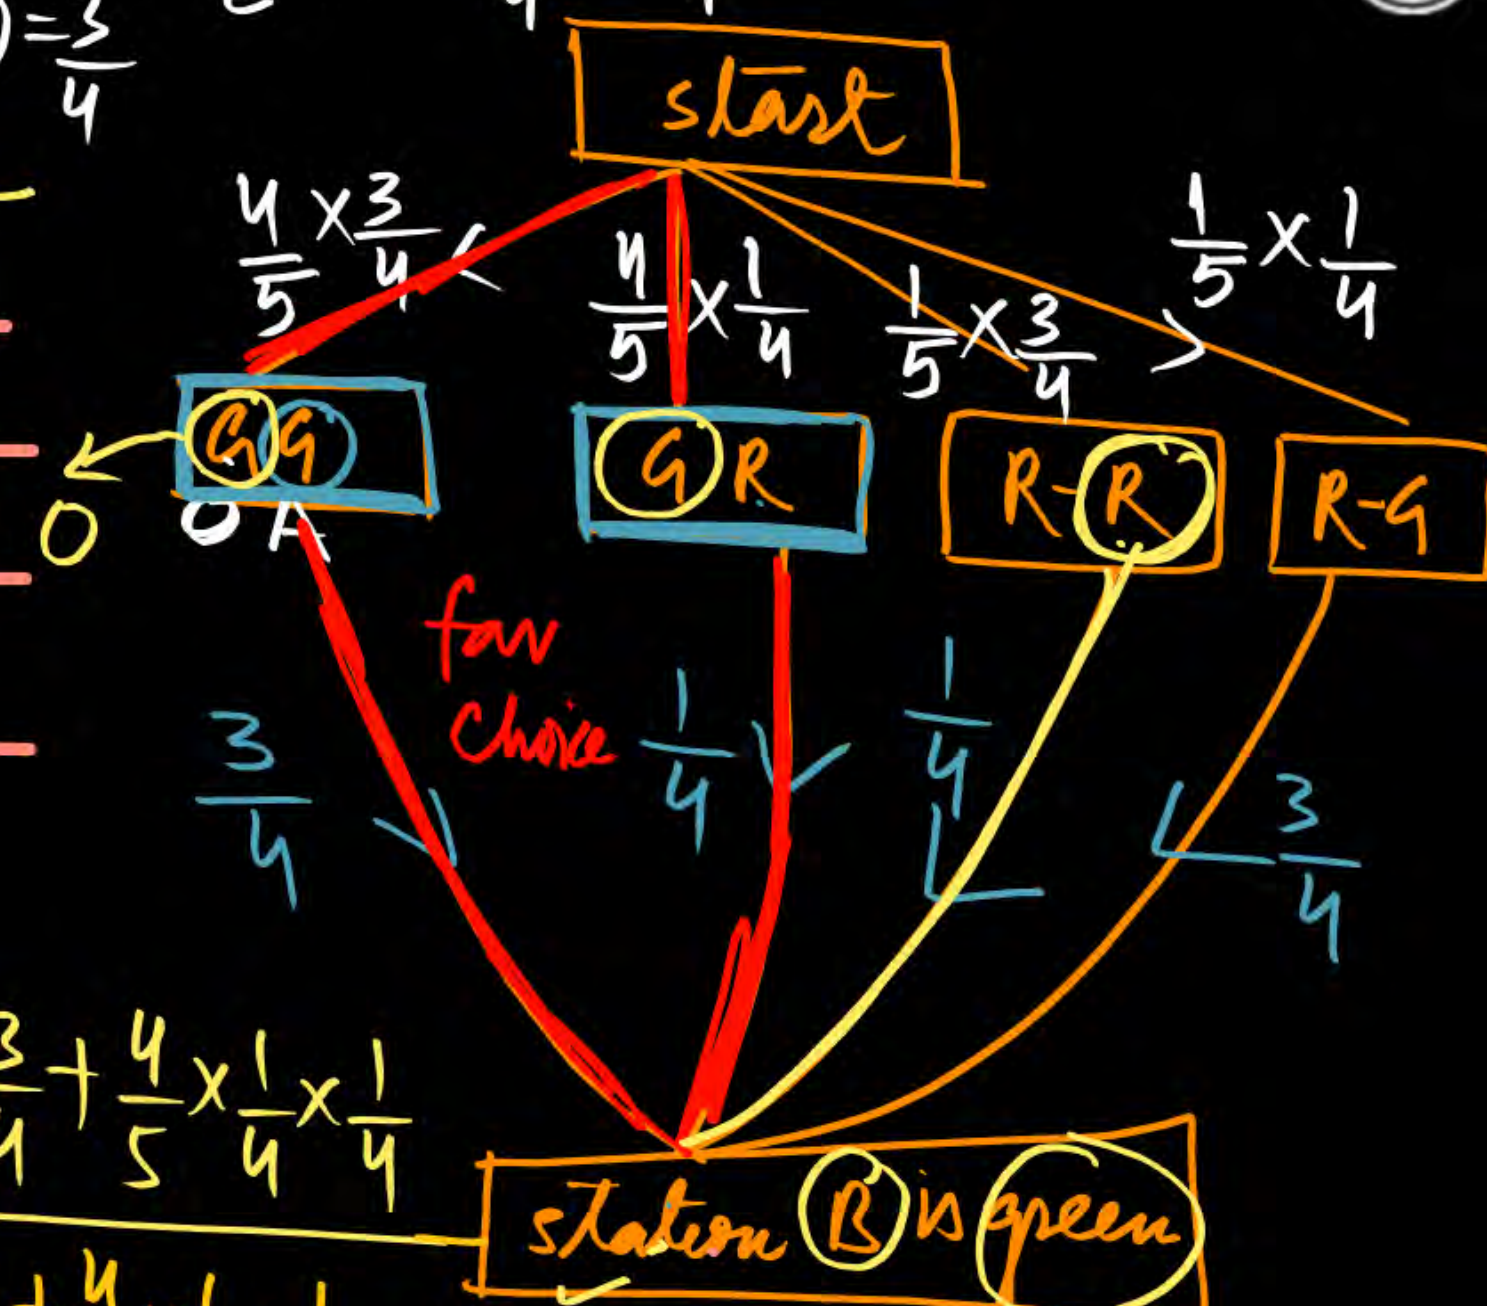 ) = 3/4
start
4/5 × 3/4
4/5 × 1/4
1/5 × 3/4
1/5 × 1/4
G G
G R
R-R
R-G
O
O A
fav
choice
3/4
1/4
1/4
3/4
3/4 + 4/5 × 1/4 × 1/4
station B is green
4